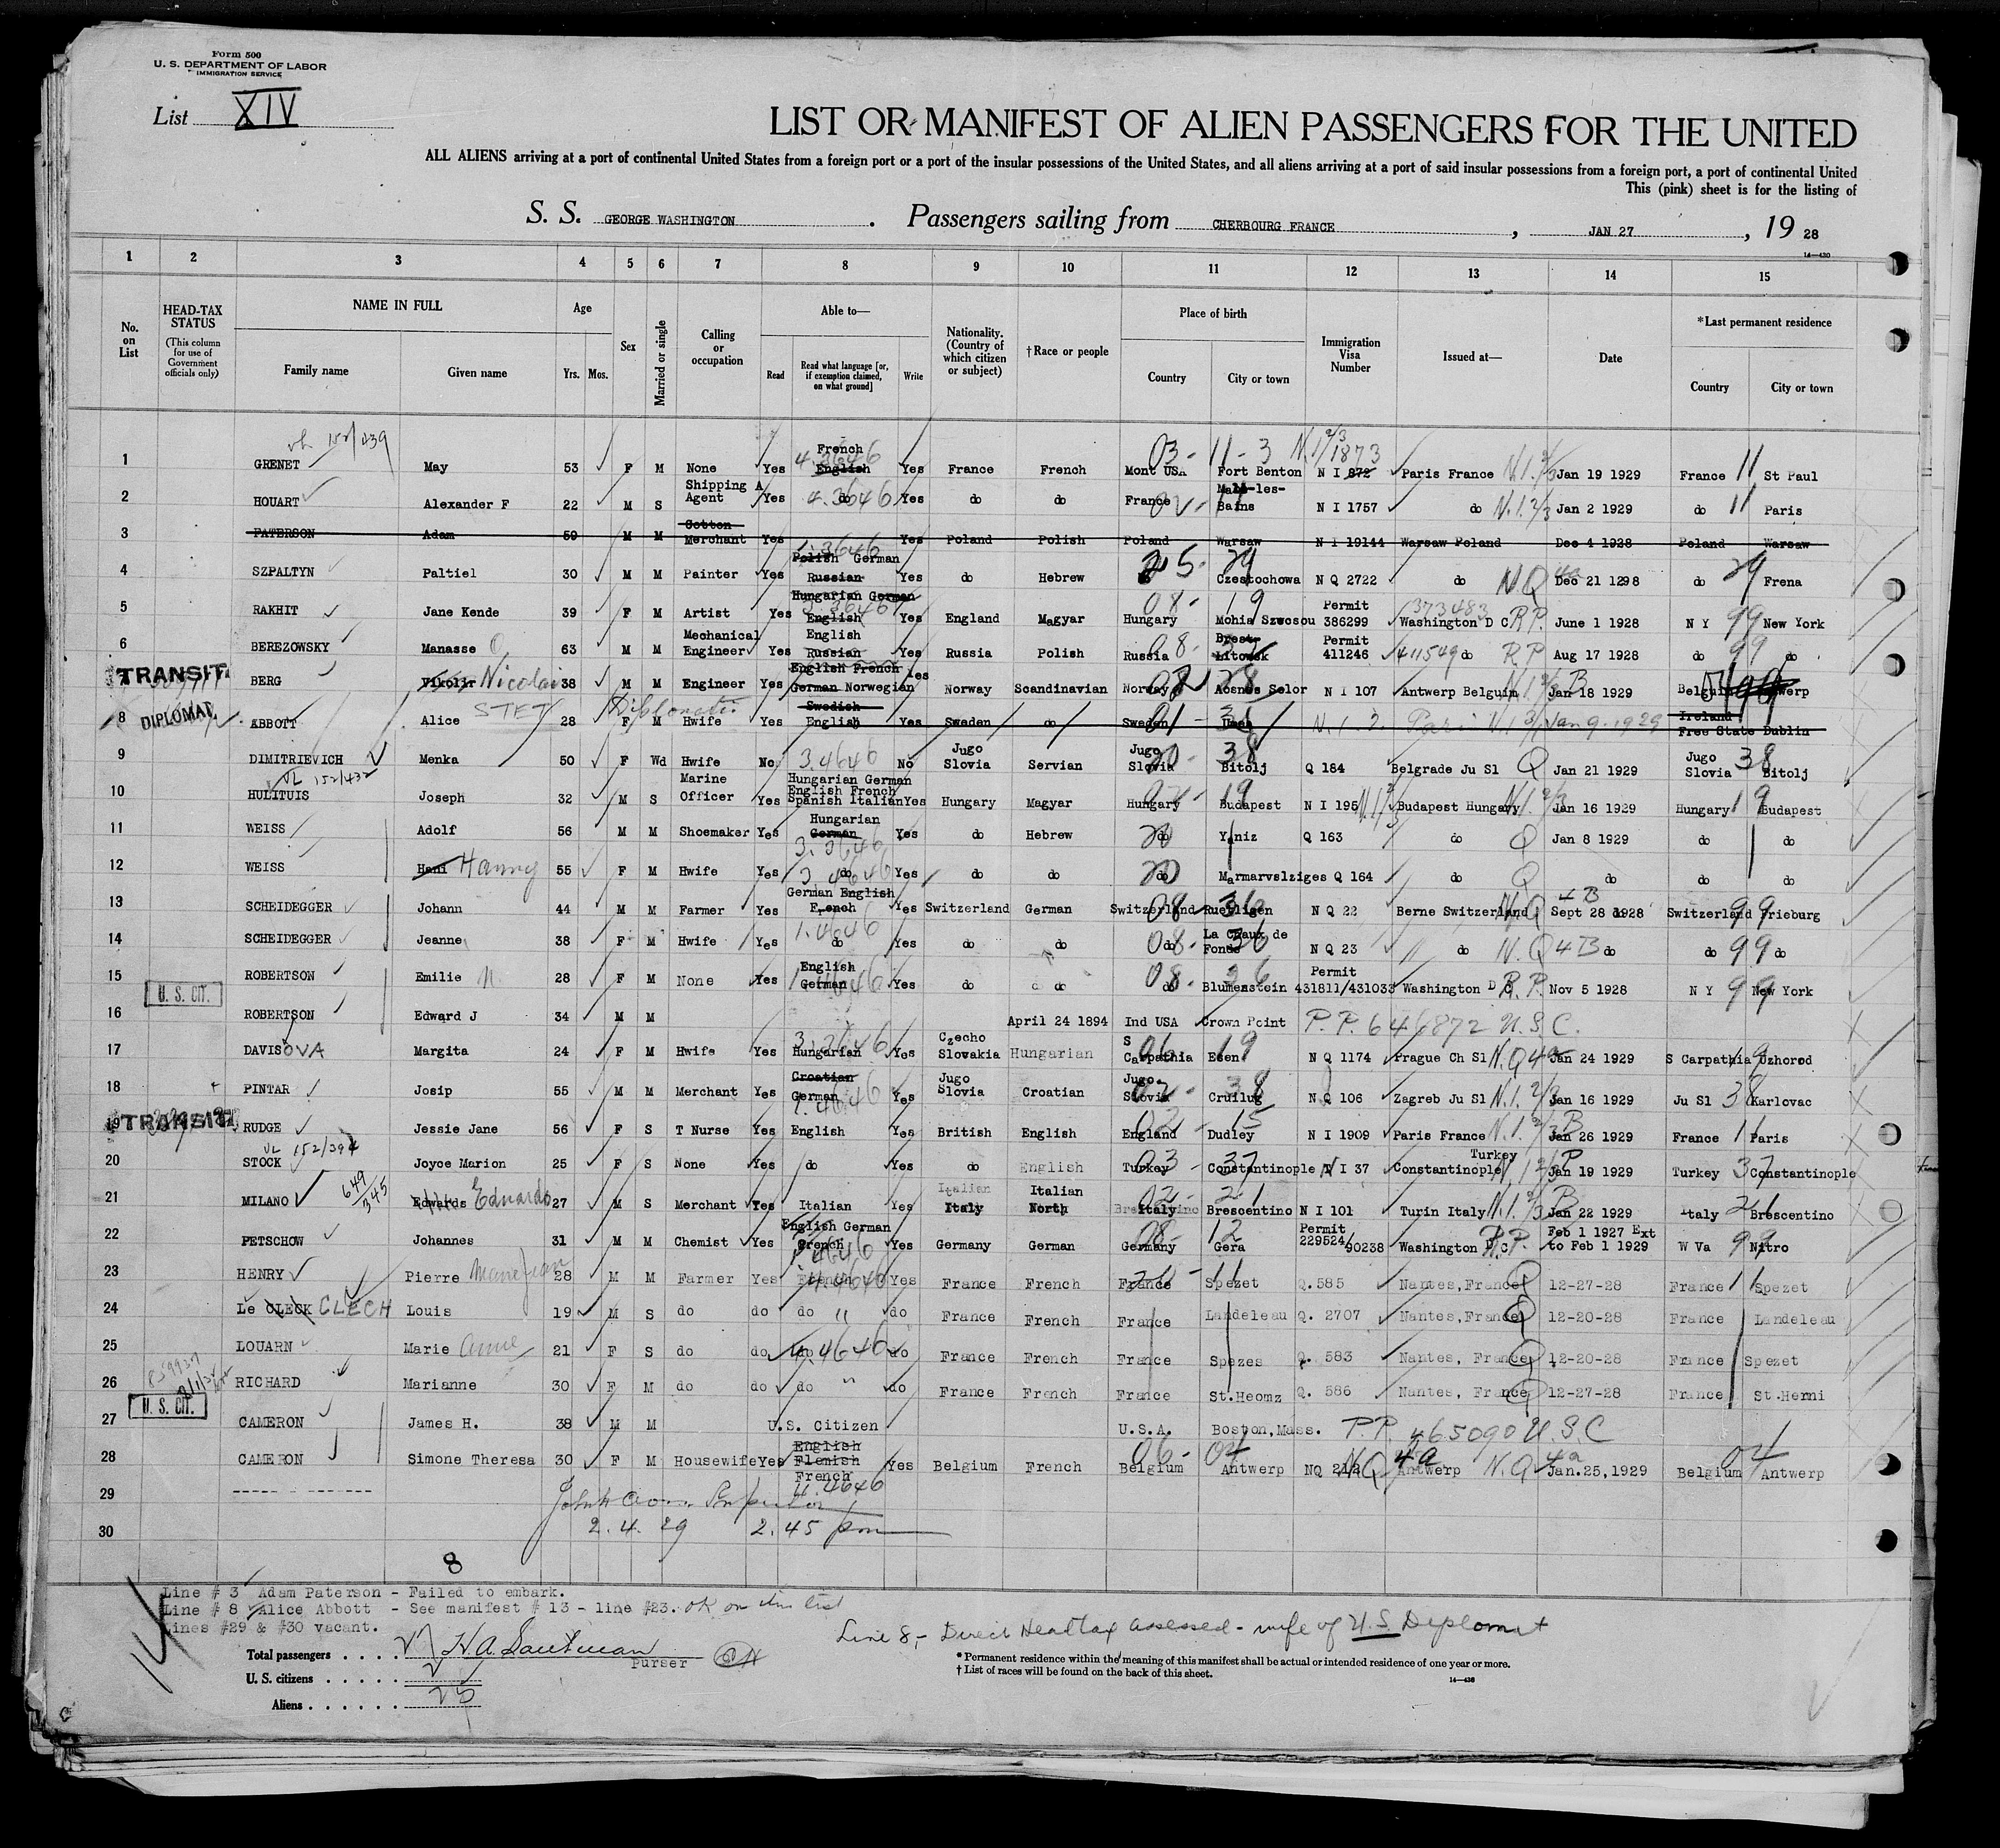 Form 500
U. S. DEPARTMENT OF LABOR
IMMIGRATION SERVICE
List XIV
LIST OR MANIFEST OF ALIEN PASSENGERS FOR THE UNITED
ALL ALIENS arriving at a port of continental United States from a foreign port or a port of the insular possessions of the United States, and all aliens arriving at a port of said insular possessions from a foreign port, a port of continental United
This (pink) sheet is for the listing of
S. S. GEORGE WASHINGTON. Passengers sailing from CHERBOURG FRANCE, JAN 27, 19 28
14—430
1 2 3 4 5 6 7 8 9 10 11 12 13 14 15
No. on List
HEAD-TAX STATUS (This column for use of Government officials only)
NAME IN FULL Family name Given name
Age Yrs. Mos.
Sex
Married or single
Calling or occupation
Able to— Read Read what language [or, if exemption claimed, on what ground] Write
Nationality. (Country of which citizen or subject)
†Race or people
Place of birth Country City or town
Immigration Visa Number
Issued at—
Date
*Last permanent residence Country City or town
1 GRENET May 53 F M None Yes French English Yes France French Mont USA Fort Benton N I 872 N.I 1873 Paris France Jan 19 1929 France 11 St Paul
2 HOUART Alexander F 22 M S Shipping A Agent Yes do Yes do do France Malo-les-Bains N I 1757 do Jan 2 1929 do 11 Paris
3 PATERSON Adam 59 M M Cotton Merchant Yes Yes Poland Polish Poland Warsaw N I 19144 Warsaw Poland Dec 4 1928 Poland Warsaw
4 SZPALTYN Paltiel 30 M M Painter Yes Polish German Russian Yes do Hebrew Czestochowa N Q 2722 do NQ Dec 21 1298 do 29 Frena
5 RAKHIT Jane Kende 39 F M Artist Yes Hungarian German English Yes England Magyar Hungary 19 Mohia Szucsou Permit 386299 373483 Washington D C R.P. June 1 1928 N Y 99 New York
6 BEREZOWSKY Manasse 63 M M Mechanical Engineer Yes English Russian Yes Russia Polish Russia Brest-Litowsk Permit 411246 411549 do R P Aug 17 1928 do 99 do
TRANSIT
7 BERG Nicolai 38 M M Engineer Yes English French German Norwegian Yes Norway Scandinavian Norway Aosnes Solor N I 107 Antwerp Belguim Jan 18 1929 Belguim Antwerp
DIPLOMAT
8 ABBOTT Alice STET 28 Diplomatic F M Hwife Yes Swedish English Yes Sweden do Sweden Umea Paris Jan 9-1929 Ireland Free State Dublin
9 DIMITRIEVICH Menka 50 F Wd Hwife No 3.4646 No Jugo Slovia Servian Jugo Slovia 38 Bitolj Q 184 Belgrade Ju Sl Q Jan 21 1929 Jugo Slovia 38 Bitolj
VL 152/432
10 HULITUIS Joseph 32 M S Marine Officer Yes Hungarian German English French Spanish Italian Yes Hungary Magyar Hungary 19 Budapest N I 195 Budapest Hungary Jan 16 1929 Hungary 19 Budapest
11 WEISS Adolf 56 M M Shoemaker Yes Hungarian German Yes do Hebrew do Yaniz Q 163 do Q Jan 8 1929 do do
12 WEISS Hani Hanny 55 F M Hwife Yes do Yes do do do Marmarvslziges Q 164 do Q do do do
13 SCHEIDEGGER Johann 44 M M Farmer Yes German English French Yes Switzerland German Switzerland 36 Rueffigen N Q 22 Berne Switzerland NQ 4B Sept 28 1928 Switzerland 99 Frieburg
14 SCHEIDEGGER Jeanne 38 F M Hwife Yes 1.4646 do Yes do do do La Chaux de Fonds 36 N Q 23 do N.Q 4B do do 99 do
15 ROBERTSON Emilie 28 F M None Yes English German Yes do do do Blumenstein Permit 431811/431033 Washington D C R.P. Nov 5 1928 N Y 99 New York
U. S. CIT.
16 ROBERTSON Edward J 34 M M April 24 1894 Ind USA Crown Point P.P. 646872 U.S.C.
17 DAVISOVA Margita 24 F M Hwife Yes Hungarian Yes Czecho Slovakia Hungarian S Carpathia 19 Esen N Q 1174 Prague Ch Sl N.Q 4a Jan 24 1929 S Carpathia 19 Uzhorod
18 PINTAR Josip 55 M M Merchant Yes Croatian German Yes Jugo Slovia Croatian Jugo Slovia 38 Cruilug N Q 106 Zagreb Ju Sl Jan 16 1929 Ju Sl 38 Karlovac
TRANSIT
19 RUDGE Jessie Jane 56 F S T Nurse Yes English Yes British English England 15 Dudley N I 1909 Paris France Jan 26 1929 France 11 Paris
20 STOCK Joyce Marion 25 F S None Yes do Yes do English Turkey 37 Constantinople N I 37 Constantinople Turkey Jan 19 1929 Turkey 37 Constantinople
21 MILANO 649/345 Edwards Eduardo 27 M S Merchant Yes Italian Yes Italian Italy Italian North Italy 21 Brescentino N I 101 Turin Italy Jan 22 1929 Italy 21 Brescentino
22 PETSCHOW Johannes 31 M M Chemist Yes English German French Yes Germany German Germany 12 Gera Permit 229524/90238 Washington D C R.P. Feb 1 1927 Ext to Feb 1 1929 W Va 99 Nitro
23 HENRY Pierre Marie Jean 28 M M Farmer Yes French Yes France French France 11 Spezet Q.585 Nantes,France Q 12-27-28 France 11 Spezet
24 Le CLECK CLECH Louis 19 M S do do do " do France French France Landeleau Q. 2707 Nantes,France Q 12-20-28 France Landeleau
25 LOUARN Marie Anne 21 F S do do do do France French France Spezes Q. 583 Nantes, France Q 12-20-28 France Spezet
26 RICHARD Marianne 30 F M do do do " do France French France St.Heomz Q. 586 Nantes, France Q 12-27-28 France St.Herni
U. S. CIT.
27 CAMERON James H. 38 M M U.S. Citizen U.S.A. Boston,Mass. P.P. 465090 U.S.C
28 CAMERON Simone Theresa 30 F M Housewife Yes English Flemish French Yes Belgium French Belgium 04 Antwerp NQ 212 Antwerp N.Q 4a Jan.25,1929 Belgium 04 Antwerp
29 ---- ------ 4.4646
30 2.4.29 2.45 pm
8
Line # 3 Adam Paterson - Failed to embark.
Line # 8 Alice Abbott - See manifest # 13 - line #23. OK on this list
Lines #29 & #30 vacant.
Line 8,- Direct Headtax assessed - wife of U.S. Diplomat
14
Total passengers . . . .
Purser
U. S. citizens . . . . .
Aliens . . . . . . 25
* Permanent residence within the meaning of this manifest shall be actual or intended residence of one year or more.
† List of races will be found on the back of this sheet.
14—430